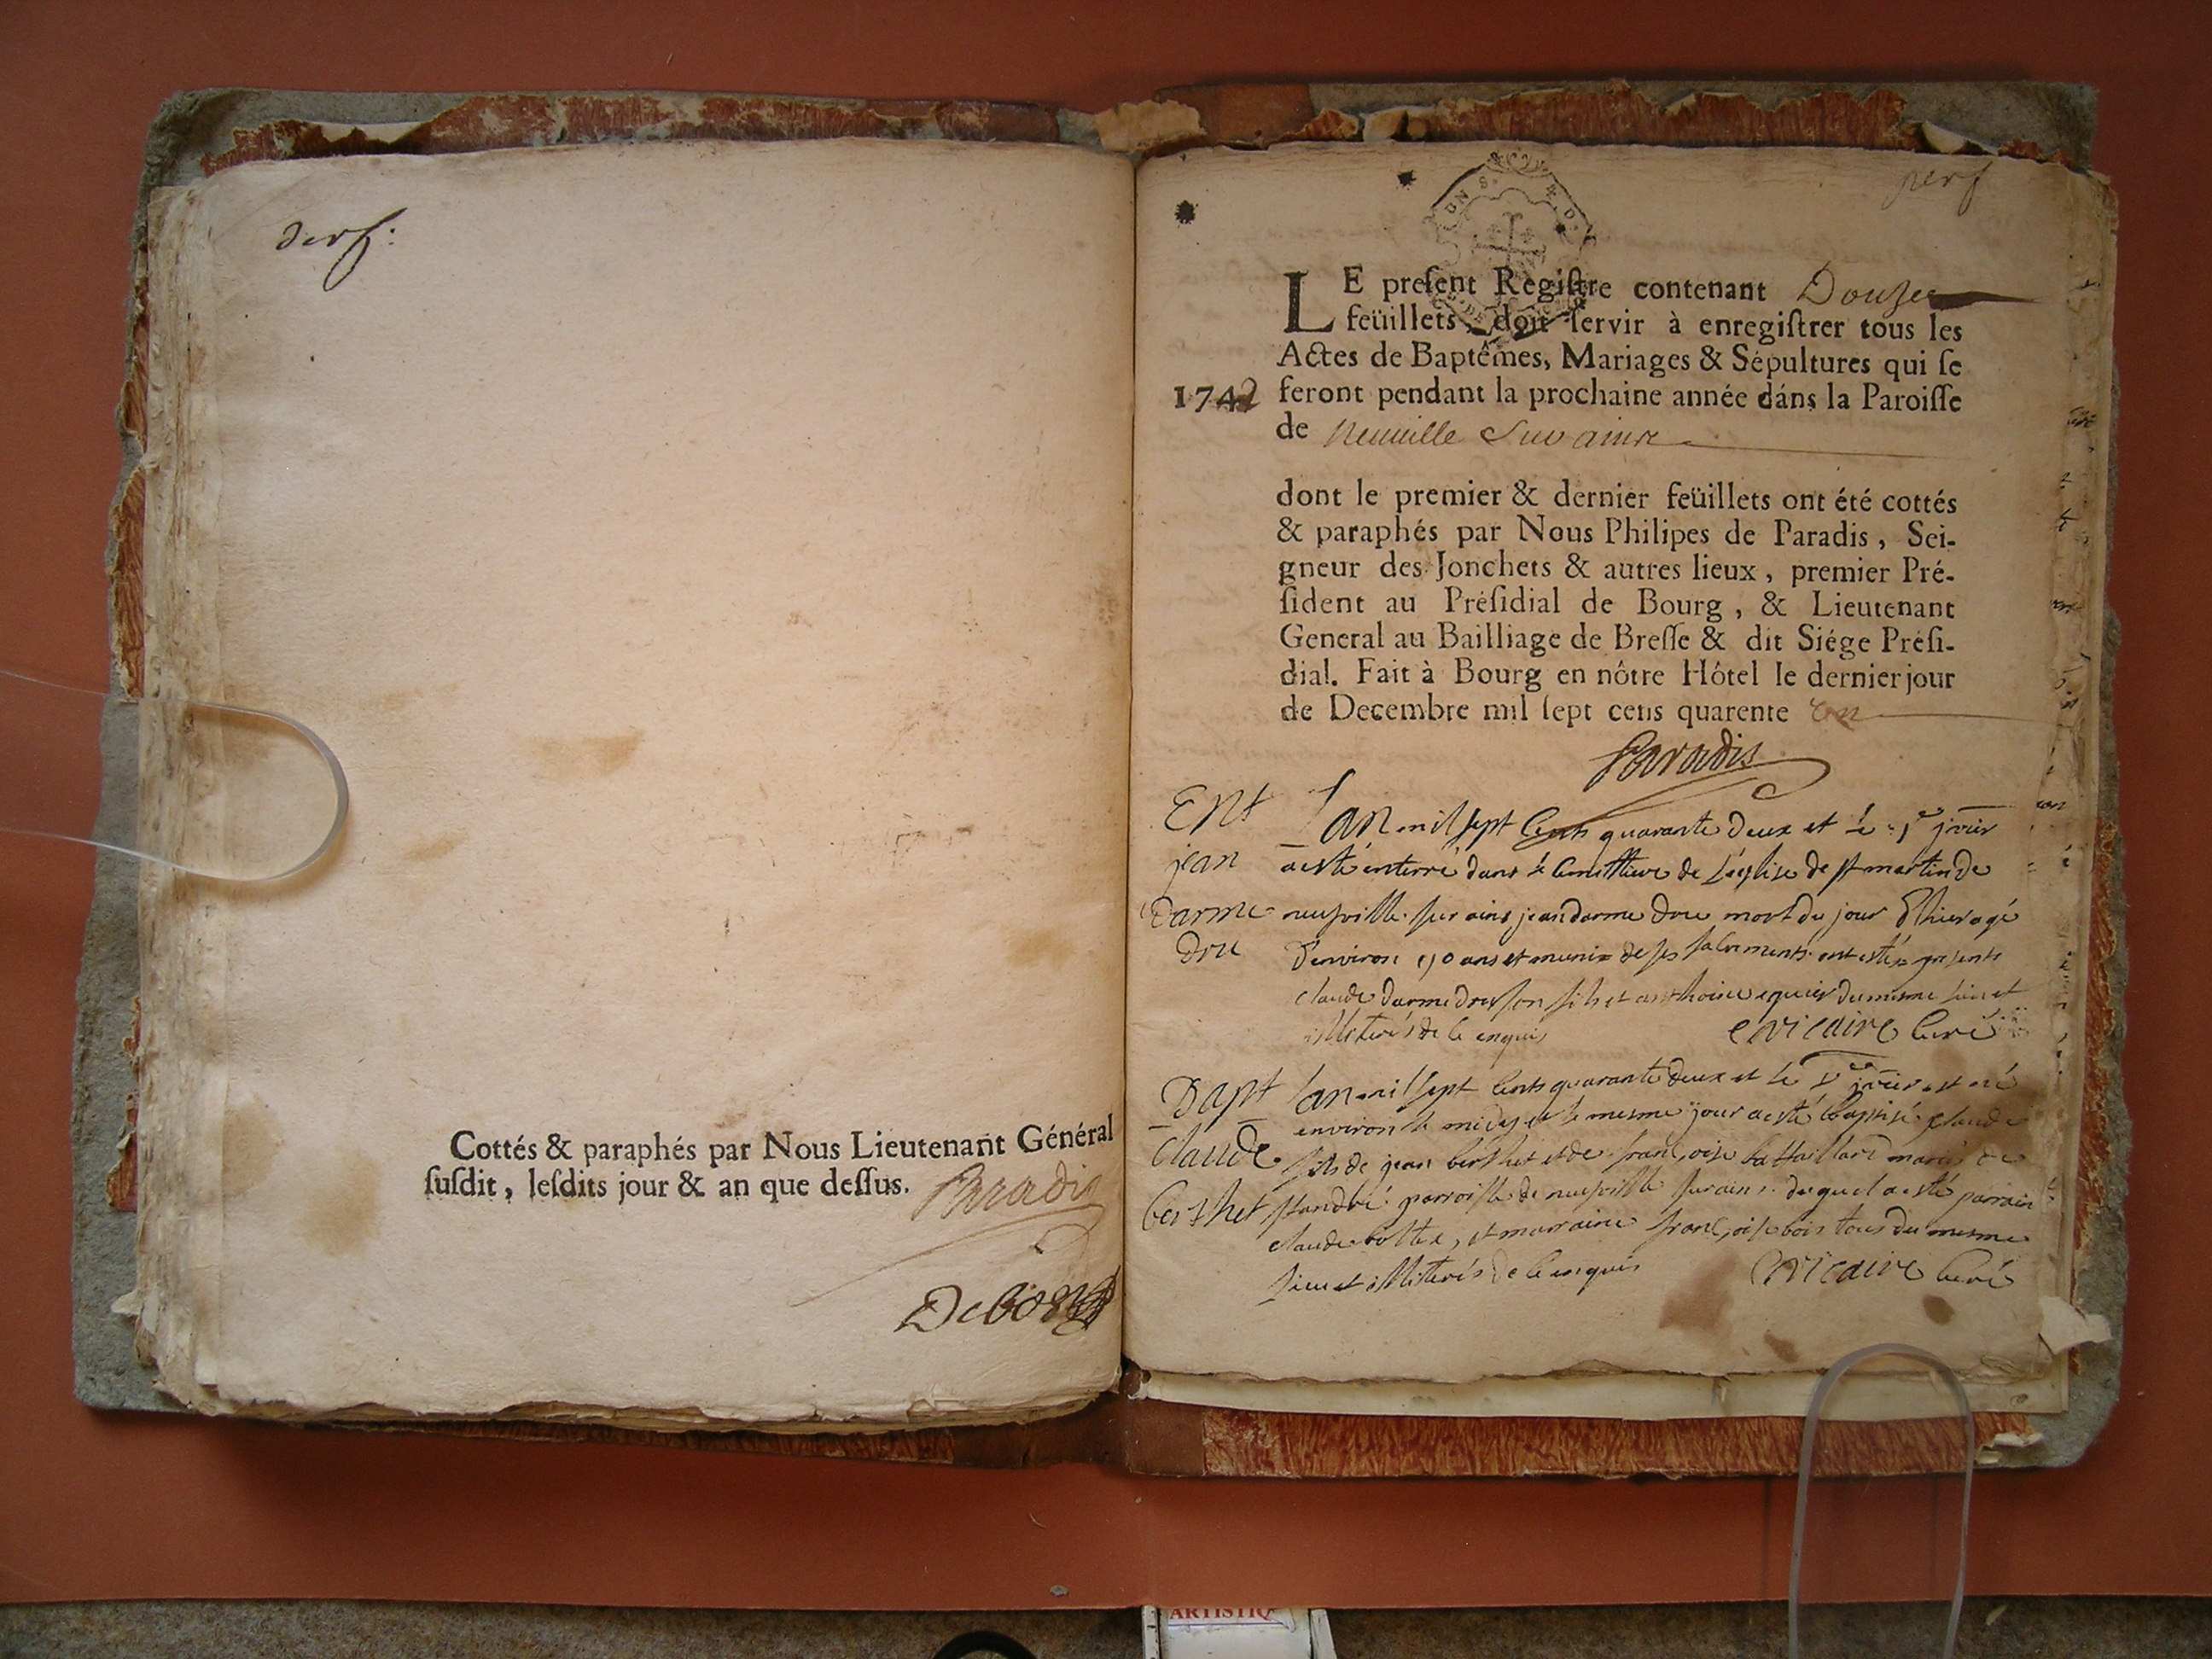 derf:
Cottés & paraphés par Nous Lieutenant Général
ſuſdit, leſdits jour & an que deſſus. Paradis
perf
LE preſent Regiſtre contenant Douze
feüillets, doit ſervir à enregiſtrer tous les
Actes de Baptêmes, Mariages & Sépultures qui ſe
1742 feront pendant la prochaine année dáns la Paroiſſe
de Neuuille
dont le premier & dernier feüillets ont été cottés
& paraphés par Nous Philipes de Paradis, Sei-
gneur des Jonchets & autres lieux, premier Pré-
ſident au Préſidial de Bourg, & Lieutenant
General au Bailliage de Breſſe & dit Siége Préſi-
dial. Fait à Bourg en nôtre Hôtel le dernier jour
de Decembre mil ſept cens quarente un
Paradis
Ent
jean
darme
dru
Lan mil sept Cents quarante deux et le 1er jvier
a esté enterré dans le Cimettiere de L'eglise de st martin de
neufville sur ains jean darme dru mort du jour d'hier agé
d'environ ans et munis de ses sacrements ont estés presents
claude darme dru son fils et du mesme lieu et
illiterés de ce enquis
E vicaire Curé
Bapt
Claude
berthet
Lan mil sept Cents quarante deux et le jvier est né
environ le midy et le mesme jour a esté baptisé claude
fils de jean berthet et de françoise battaillard mariés de
st andré parroisse de neufville sur ains duquel a esté parrain
claude bottex, et marraine françoise bois tous du mesme
lieu et illiterés de ce enquis
E vicaire Curé
ARTISTIQ